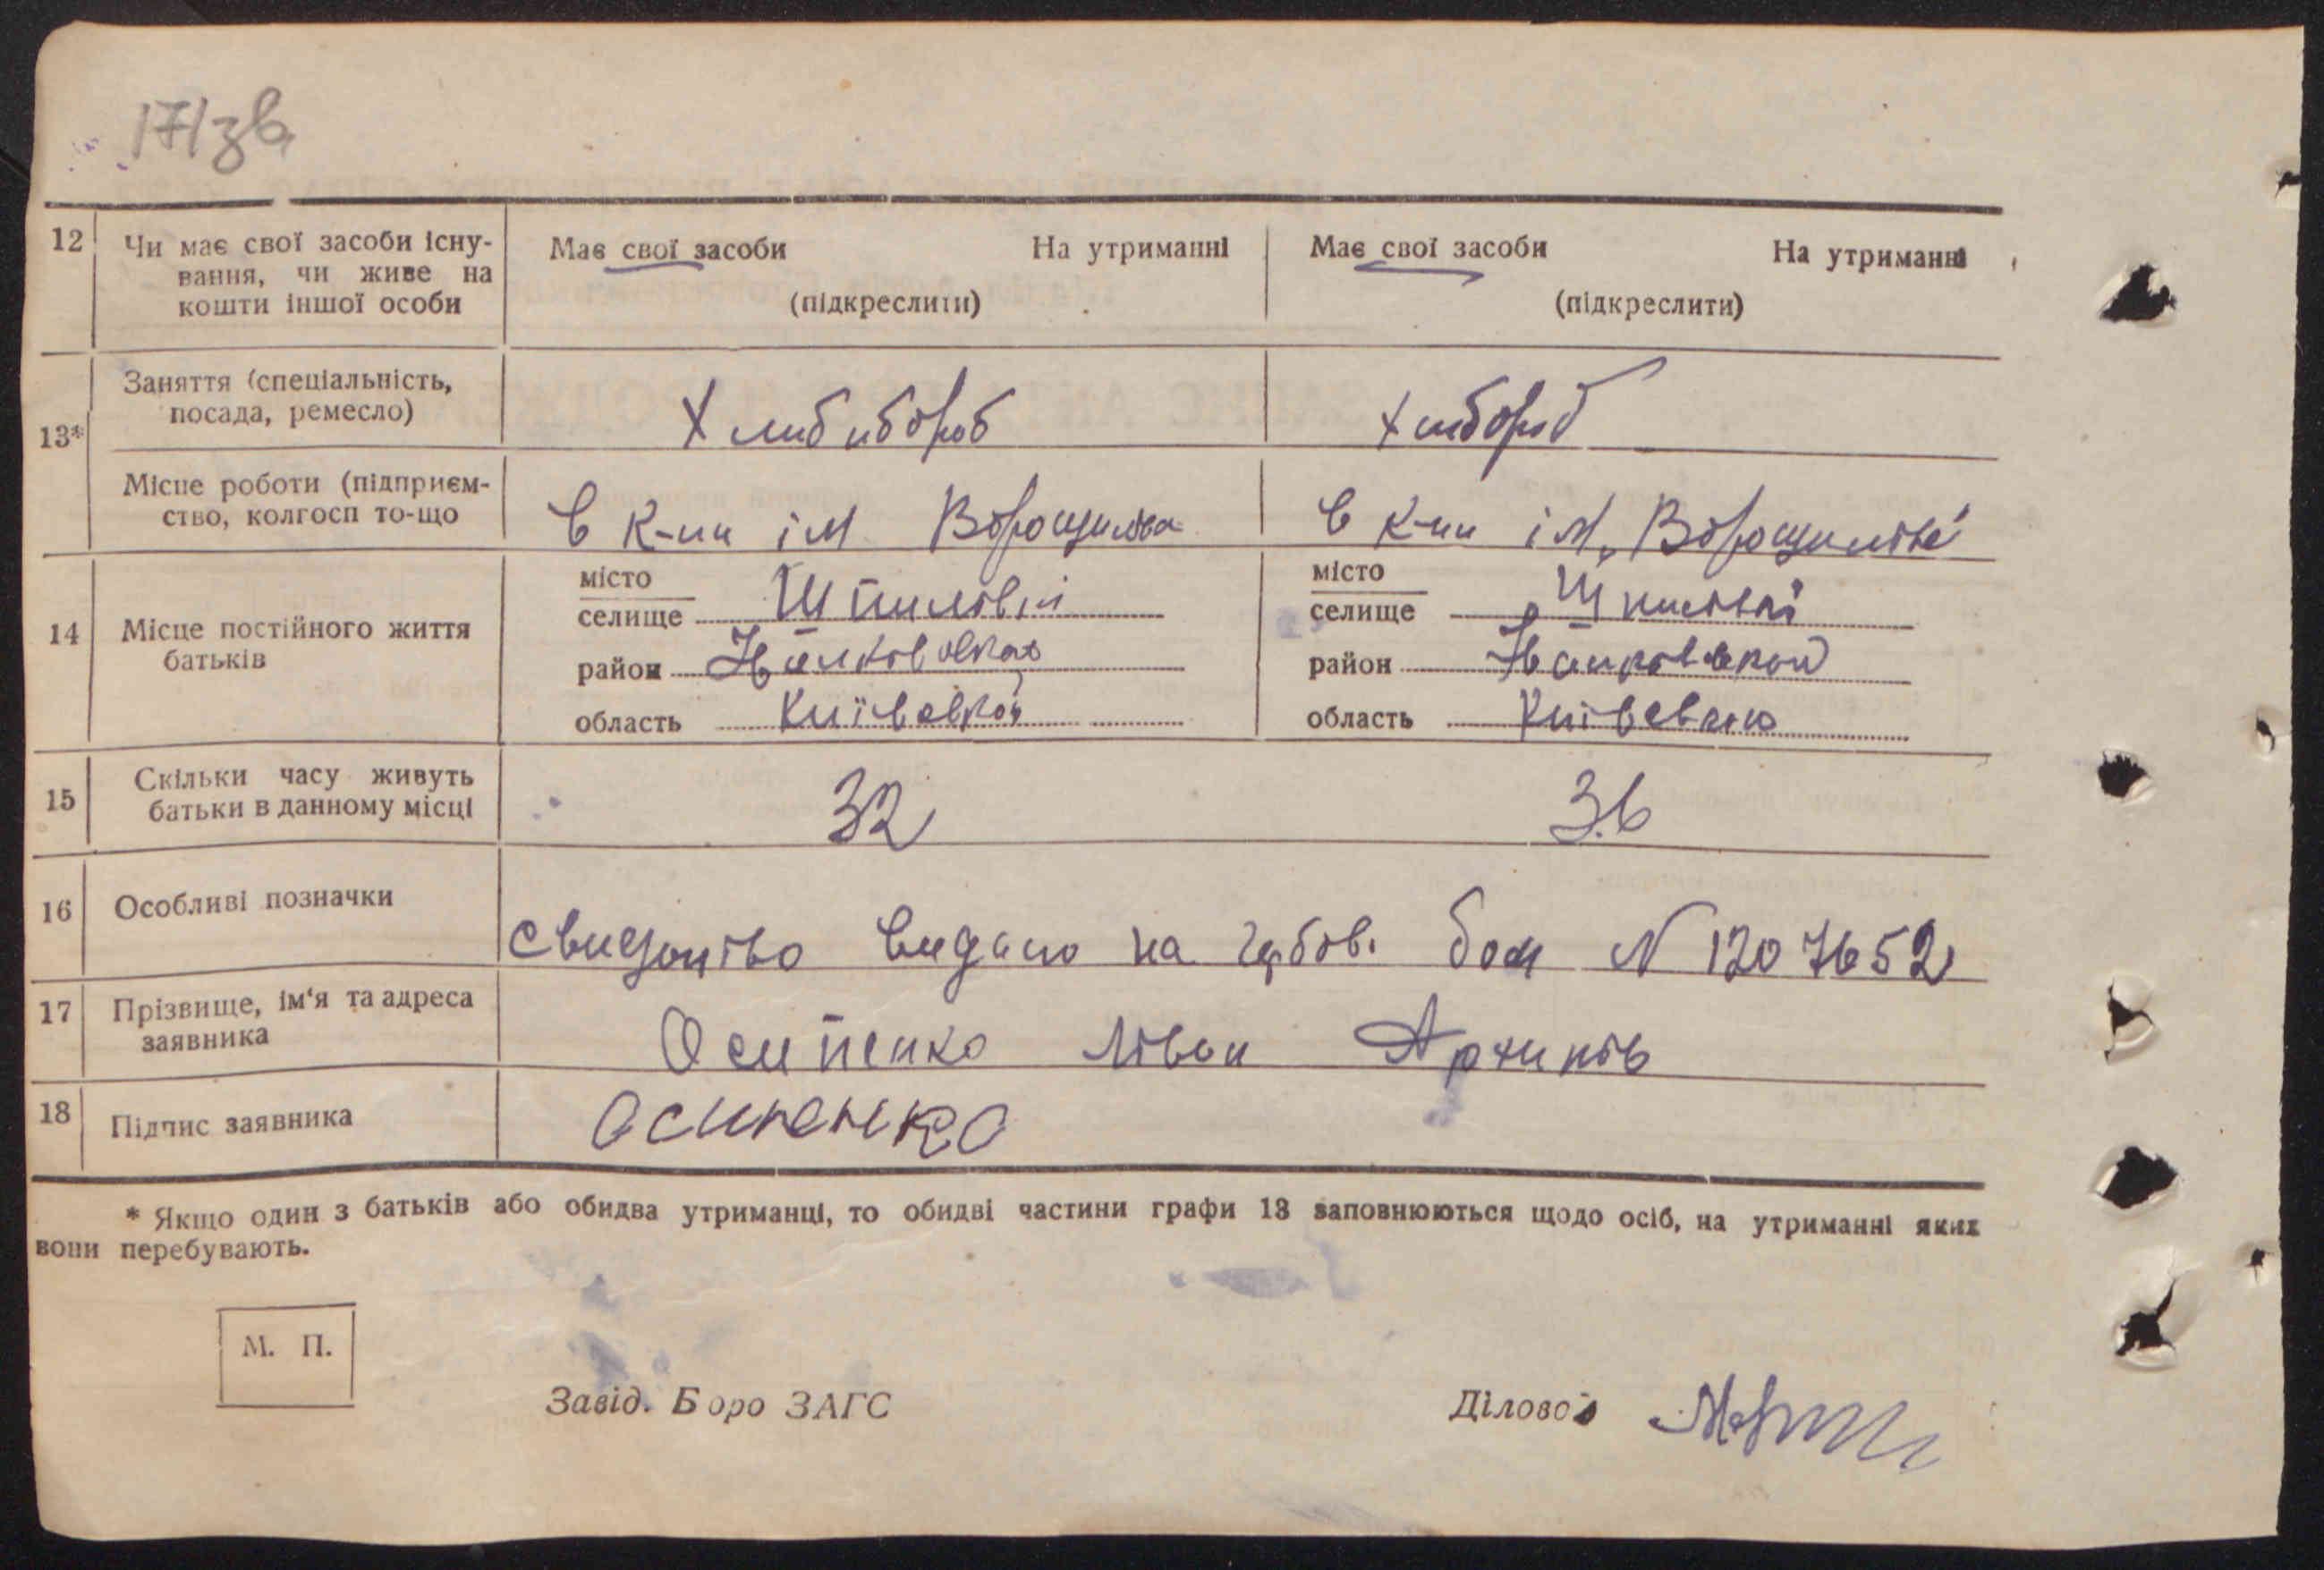 171зв
12 Чи має свої засоби існу-
вання, чи живе на
кошти іншої особи
Має свої засоби На утриманні
(підкреслити)
Має свої засоби На утриманні
(підкреслити)
13*
Заняття (спеціальність,
посада, ремесло)
Хлибибороб
Хлибороб
Місце роботи (підприєм-
ство, колгосп то-що
в к-пи ім Ворошилова
в к-пи ім. Ворошилова
14 Місце постійного життя
батьків
місто
селище Шпиловкі
район
область Київской
місто
селище Шпиловкі
район
область Киівскою
15 Скільки часу живуть
батьки в данному місці
32
36
16 Особливі позначки
свидоцтво видано на гербов. бом N 1207652
17 Прізвище, ім'я та адреса
заявника
Осипенко Иван Архипов
18 Підпис заявника
Осипенко
* Якщо один з батьків або обидва утриманці, то обидві частини графи 13 заповнюються щодо осіб, на утриманні яких
вони перебувають.
М. П.
Завід. Бюро ЗАГС
Діловод